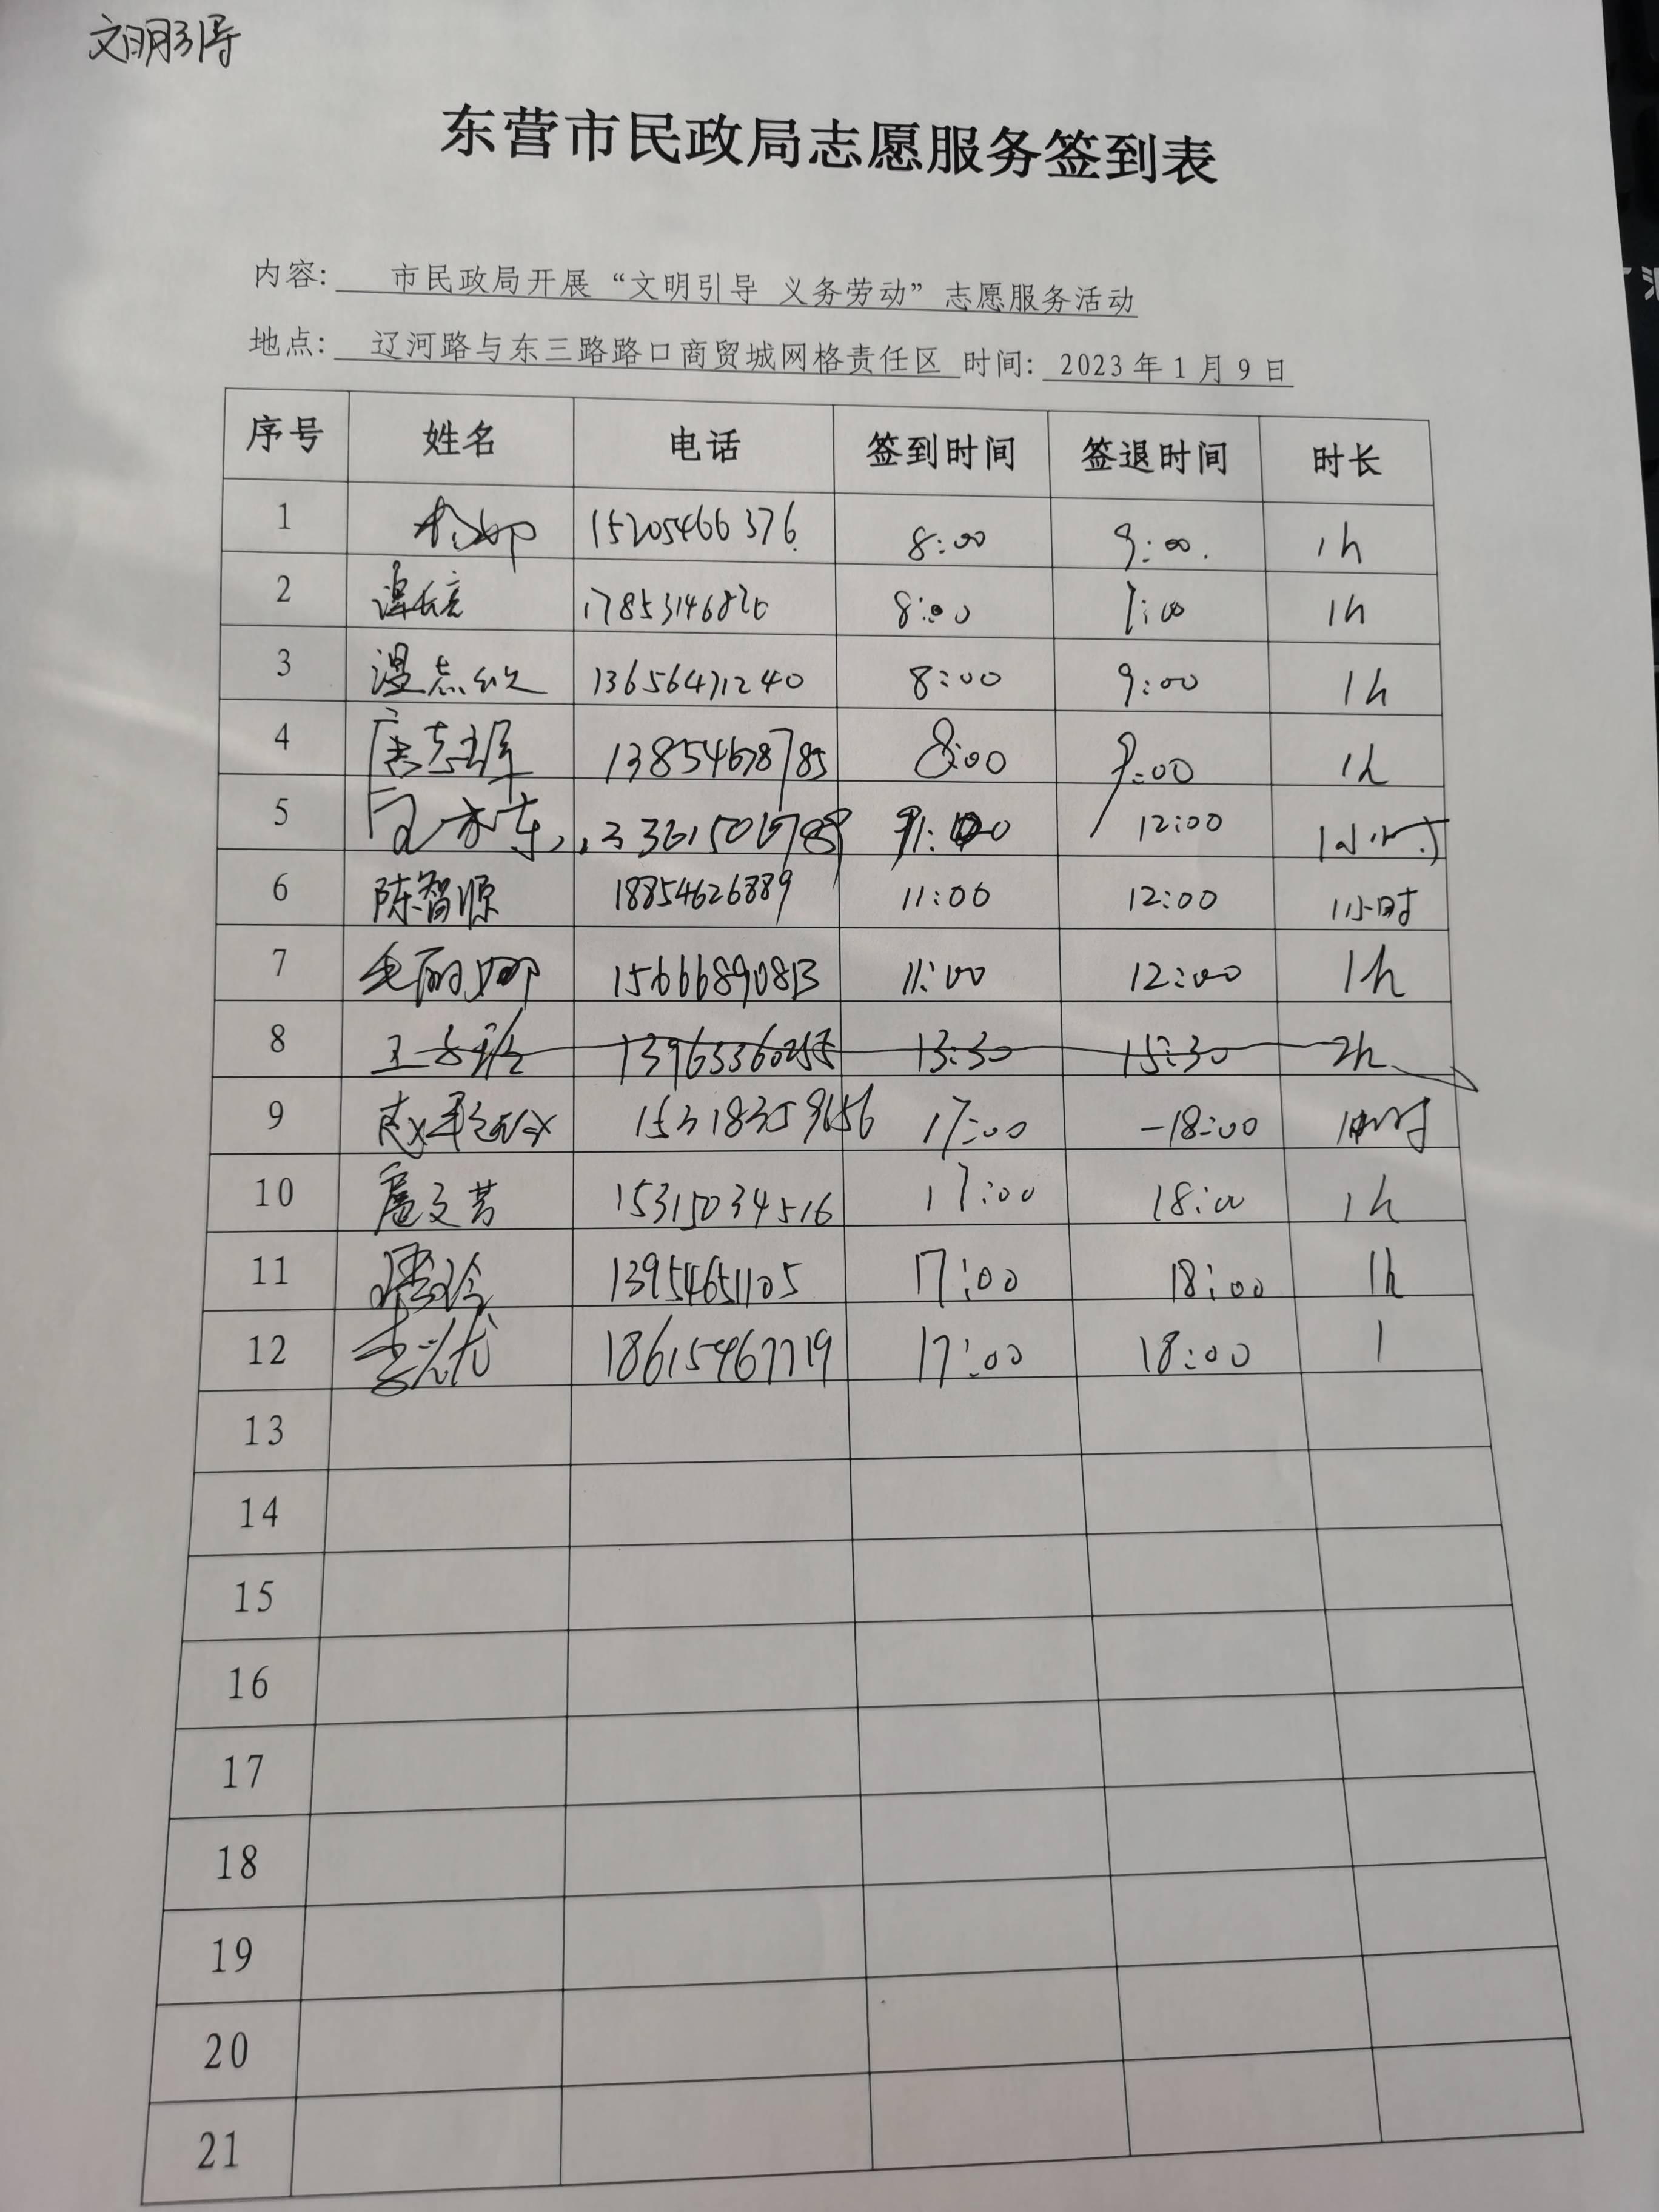 文明引导
东营市民政局志愿服务签到表
内容: 市民政局开展“文明引导 义务劳动”志愿服务活动
地点: 辽河路与东三路路口商贸城网格责任区 时间: 2023年1月9日
序号 姓名 电话 签到时间 签退时间 时长
1 15205466376 8:00 9:00 1h
2 8:00 9:00 1h
3 13656471240 8:00 9:00 1h
4 13854678785 8:00 9:00 1h
5 12:00 1小时
6 陈智源 18854626889 11:00 12:00 1小时
7 毛丽娜 15666890813 11:00 12:00 1h
8 13:30 15:30 2h
9 17:00 -18:00 1小时
10 15315034516 17:00 18:00 1h
11 13954651105 17:00 18:00 1h
12 18615467719 17:00 18:00 1
13
14
15
16
17
18
19
20
21